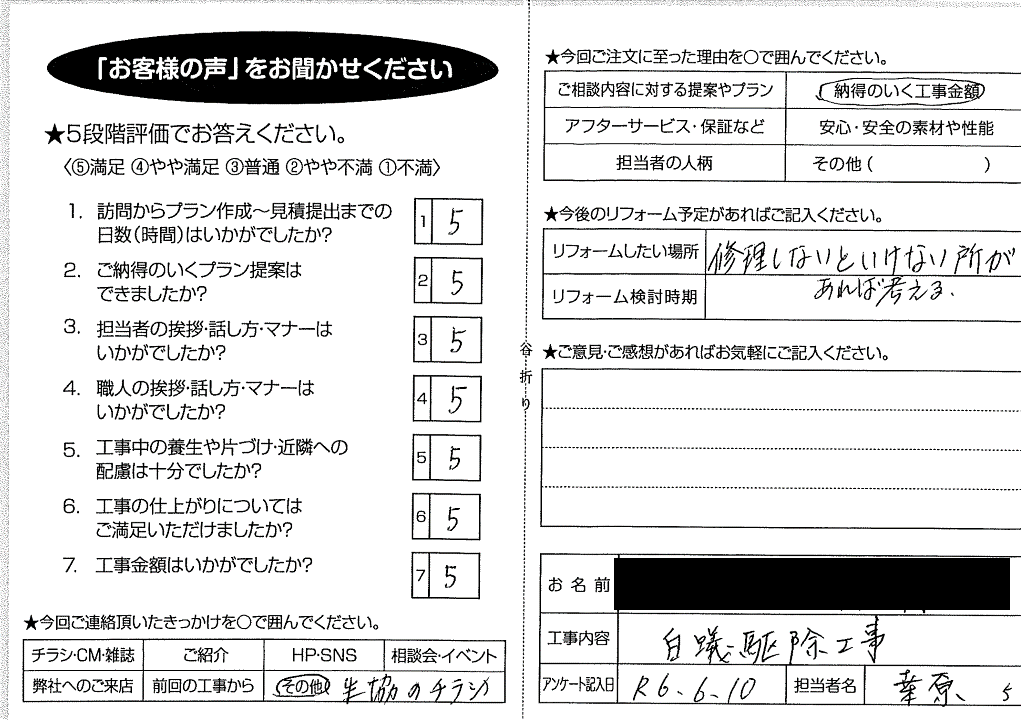 「お客様の声」をお聞かせください
★5段階評価でお答えください。
〈⑤満足 ④やや満足 ③普通 ②やや不満 ①不満〉
1. 訪問からプラン作成～見積提出までの
日数(時間)はいかがでしたか?
1 5
2. ご納得のいくプラン提案は
できましたか?
2 5
3. 担当者の挨拶・話し方・マナーは
いかがでしたか?
3 5
4. 職人の挨拶・話し方・マナーは
いかがでしたか?
4 5
5. 工事中の養生や片づけ・近隣への
配慮は十分でしたか?
5 5
6. 工事の仕上がりについては
ご満足いただけましたか?
6 5
7. 工事金額はいかがでしたか?
7 5
★今回ご連絡頂いたきっかけを○で囲んでください。
チラシ・CM・雑誌 ご紹介 HP・SNS 相談会・イベント
弊社へのご来店 前回の工事から その他 生協のチラシ
谷折り
★今回ご注文に至った理由を○で囲んでください。
ご相談内容に対する提案やプラン 納得のいく工事金額
アフターサービス・保証など 安心・安全の素材や性能
担当者の人柄 その他( )
★今後のリフォーム予定があればご記入ください。
リフォームしたい場所 修理しないといけない所が
リフォーム検討時期 あれば考える、
★ご意見・ご感想があればお気軽にご記入ください。
お名前
工事内容 白蟻駆除工事
アンケート記入日 R6、6、10 担当者名